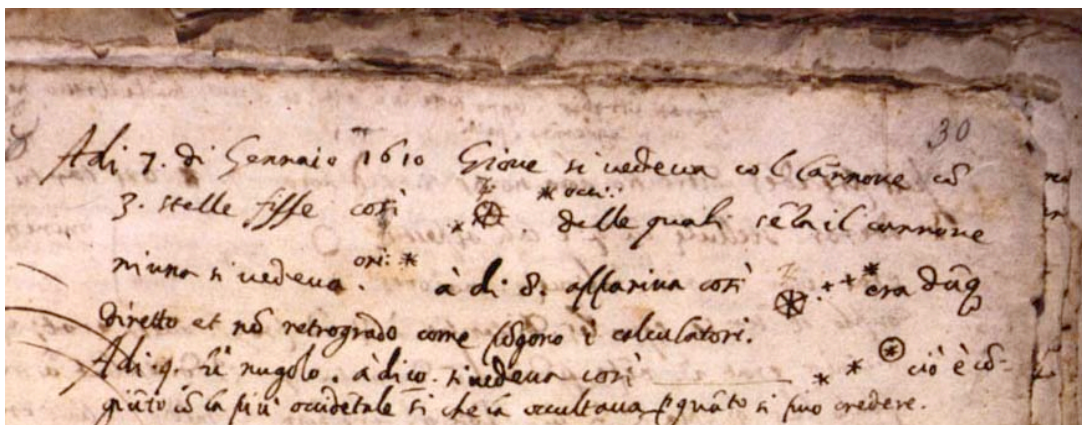 30
Adi 7. di Gennaio 1610 Giove si vedeva col Cannone cõ
3. stelle fisse così * occi:
delle quali sẽza il cannone
niuna si vedeva. ori: * à dì 8. appariva così * era dũq
diretto et nõ retrogrado come põgono i calculatori.
Adi .9. fù nugolo. à dì 10. si vedeva così * * ciò è cõ-
giũto cõ la più occidẽtale sì che la occultava p quãto si può credere.